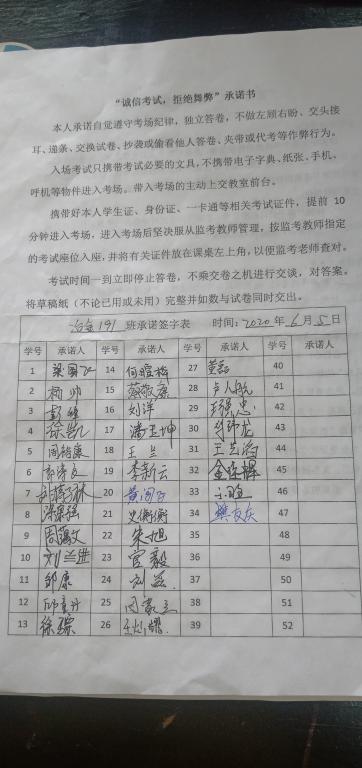 “诚信考试，拒绝舞弊”承诺书
本人承诺自觉遵守考场纪律，独立答卷，不做左顾右盼、交头接
耳、递条、交换试卷、抄袭或偷看他人答卷、夹带或代考等作弊行为。
入场考试只携带考试必要的文具，不携带电子字典、纸张、手机、
呼机等物件进入考场。带入考场的主动上交教室前台。
携带好本人学生证、身份证、一卡通等相关考试证件，提前 10
分钟进入考场，进入考场后坚决服从监考教师管理，按监考教师指定
的考试座位入座，并将有关证件放在课桌左上角，以便监考老师查对。
考试时间一到立即停止答卷，不乘交卷之机进行交谈，对答案。
将草稿纸（不论已用或未用）完整并如数与试卷同时交出。
冶金191 班承诺签字表 时间：2020年6月5日
学号 承诺人 学号 承诺人 学号 承诺人 学号 承诺人
1 14 27 40
2 15 28 41
3 16 刘洋 29 42
4 17 潘正坤 30 43
5 18 王兰 31 44
6 19 李新云 32 45
7 20 33 46
8 21 史衡衡 34 47
9 22 朱旭 35 48
10 23 宫毅 36 49
11 邹康 24 37 50
12 25 38 51
13 26 39 52